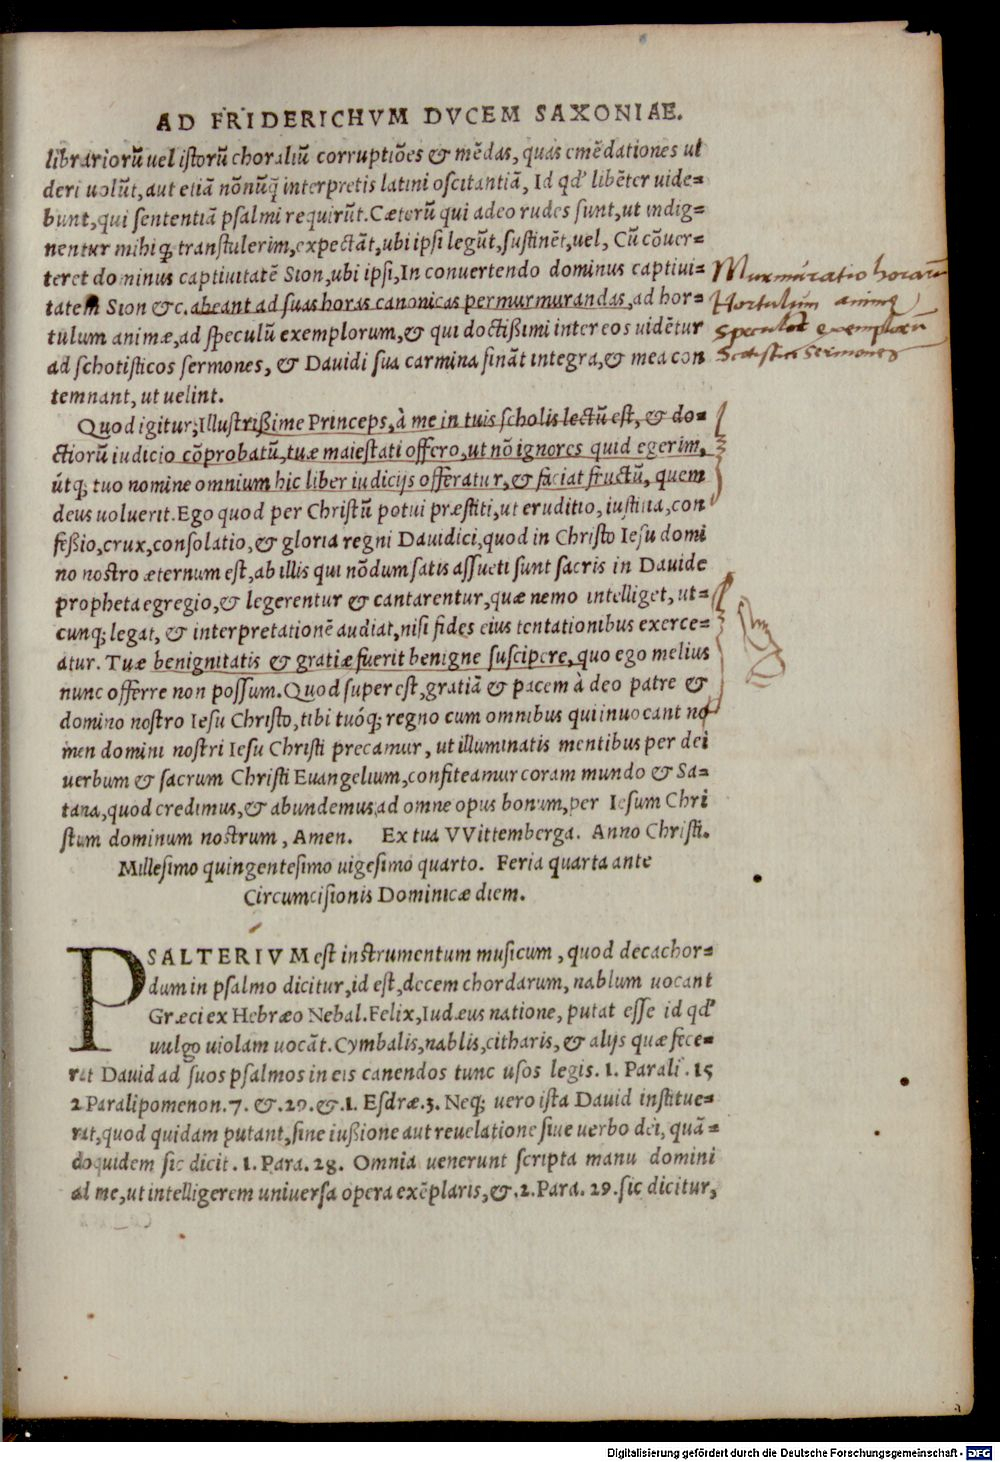 AD FRIDERICHVM DVCEM SAXONIAE.
librariorũ uel istorũ choraliũ corruptiões & mẽdas, quas emẽdationes ui
deri uolũt, aut etiã nõnũq̃ interpretis latini oscitantiã, Id qđ libẽter uide=
bunt, qui sententiã psalmi requirũt. Cæterũ qui adeo rudes sunt, ut indig=
nentur mihi q; transtulerim, expectãt, ubi ipsi legũt, sustinẽt, uel, Cũ cõuer=
teret dominus captiuitatẽ Sion, ubi ipsi, In conuertendo dominus captiui=
tatem Sion &c. abeant ad suas horas canonicas permurmurandas, ad hor=
tulum animæ, ad speculũ exemplorum, & qui doctißimi inter eos uidẽtur
ad schotisticos sermones, & Dauidi sua carmina sinãt integra, & mea con
temnant, ut uelint.
Murmuratio horarũ
Hortulum anime
Speculũ exemplorũ
Scotistici Sermones
Quod igitur, Illustrißime Princeps, à me in tuis scholis lectũ est, & do=
ctiorũ iudicio cõprobatũ, tuæ maiestati offero, ut nõ ignores quid egerim,
útq; tuo nomine omnium hic liber iudicijs offeratur, & faciat fructũ, quem
deus uoluerit. Ego quod per Christũ potui præstiti, ut eruditio, iustitia, con
feßio, crux, consolatio, & gloria regni Dauidici, quod in Christo Iesu domi
no nostro æternum est, ab illis qui nõdum satis assueti sunt sacris in Dauide
propheta egregio, & legerentur & cantarentur, quæ nemo intelliget, ut=
cunq; legat, & interpretationẽ audiat, nisi fides eius tentationibus exerce=
atur. Tuæ benignitatis & gratiæ fuerit benigne suscipere, quo ego melius
nunc offerre non possum. Quod superest, gratiã & pacem à deo patre &
domino nostro Iesu Christo, tibi tuóq; regno cum omnibus qui inuocant no
men domini nostri Iesu Christi precamur, ut illuminatis mentibus per dei
uerbum & sacrum Christi Euangelium, confiteamur coram mundo & Sa=
tana, quod credimus, & abundemus ad omne opus bonum, per Iesum Chri
stum dominum nostrum, Amen. Ex tua VVittemberga. Anno Christi.
Millesimo quingentesimo uigesimo quarto. Feria quarta ante
Circumcisionis Dominicæ diem.
PSALTERIVM est instrumentum musicum, quod decachor=
dum in psalmo dicitur, id est, decem chordarum, nablum uocant
Græci ex Hebræo Nebal. Felix, Iudæus natione, putat esse id qđ
uulgo uiolam uocãt. Cymbalis, nablis, citharis, & alijs quæ fece=
rat Dauid ad suos psalmos in eis canendos tunc usos legis. 1. Parali. 15
2 Paralipomenon. 7. &. 29. &. 1. Esdræ. 3. Neq; uero ista Dauid institue=
rat, quod quidam putant, sine iußione aut reuelatione siue uerbo dei, quã=
doquidem sic dicit. 1. Para. 28. Omnia uenerunt scripta manu domini
ad me, ut intelligerem uniuersa opera exẽplaris, &. 2. Para. 29. sic dicitur,
Digitalisierung gefördert durch die Deutsche Forschungsgemeinschaft - DFG